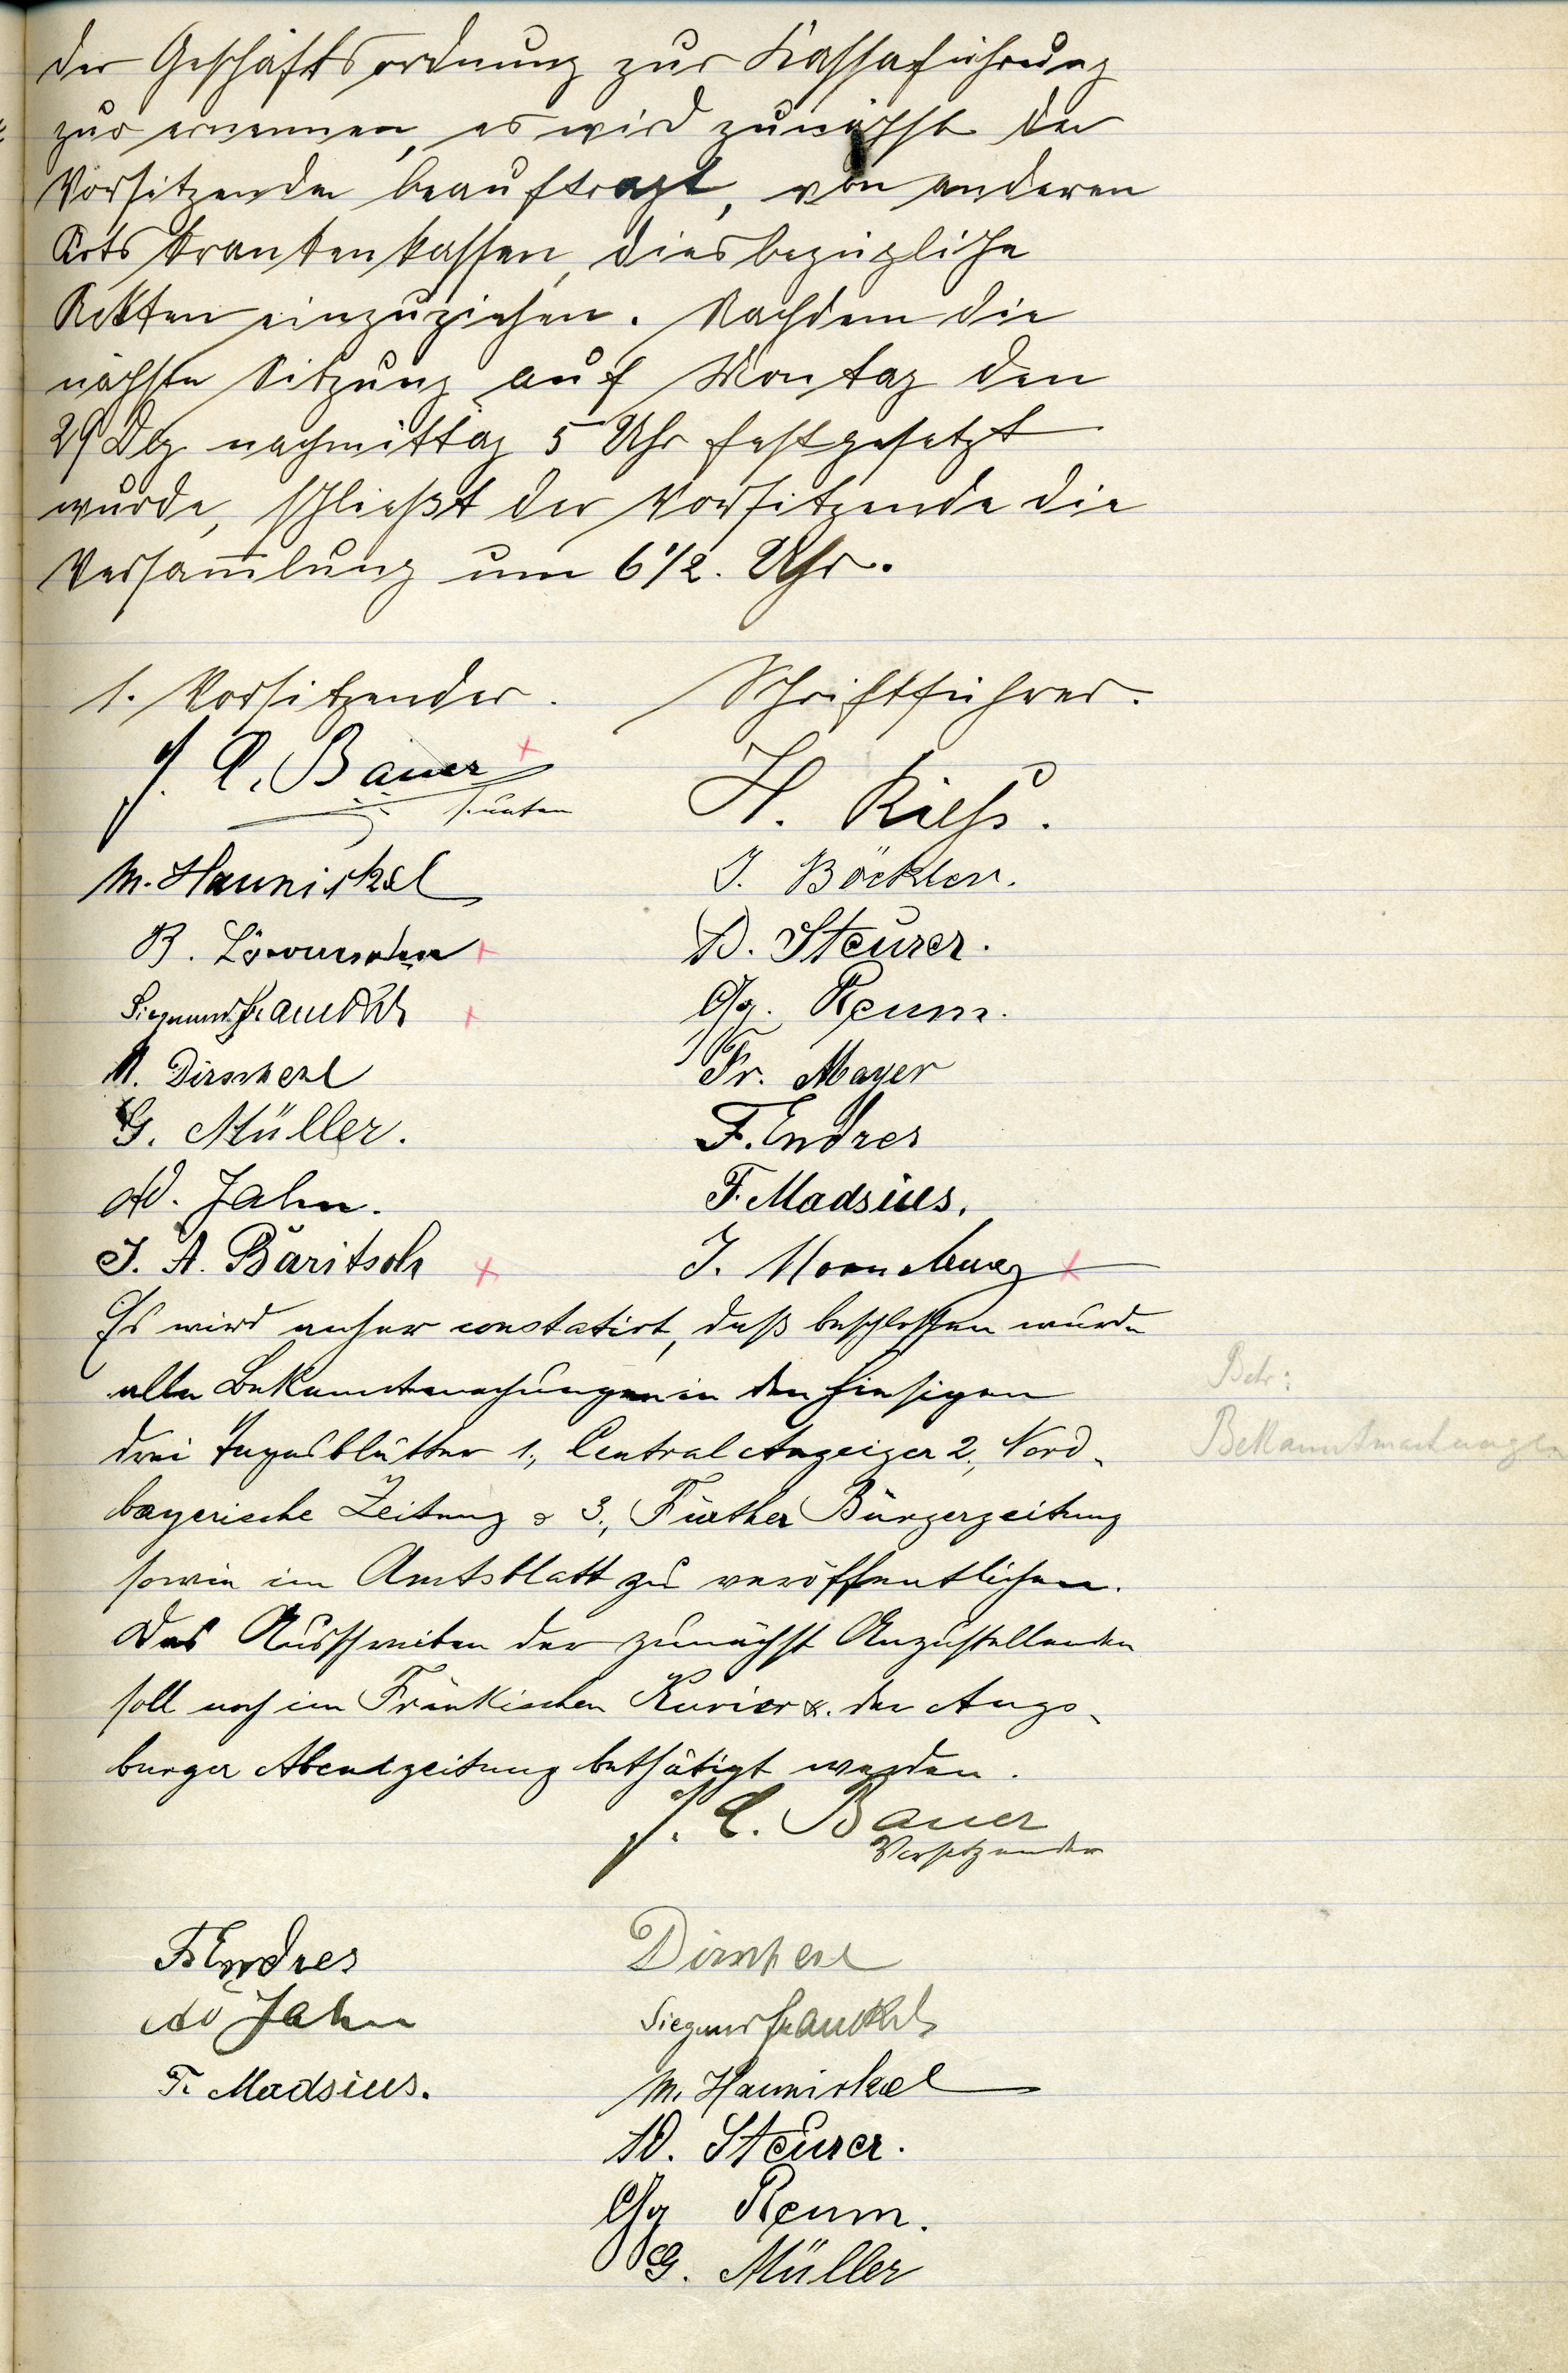 der Geschäftsordnung zur Kassaführung
zur ernennen, es wird zunächst der
Vorsitzende beauftragt, von anderen
Ortskrankenkassen, diesbezügliche
Akten einzuziehen. Nachdem die
nächste Sitzung auf Montag den
29 Dez nachmittag 5 Uhr festgesetzt
wurde, schließt der Vorsitzende die
Versam̅lung um 6 1/2. Uhr.
1. Vorsitzender. Schriftführer.
J. C. Bauer H. Kiess.
s. unten
M. Haunickel J. Böckler.
B. D. Steurer.
Siegmund Fraenkel Gg. Reum.
M. Dirscherl Fr. Mayer
G. Müller. F. Endres
Ad. Jahn. F. Madsius.
J. A. Bäritsch J.
Es wird anher constatirt, daß beschlossen wurde
alle Bekanntmachungen in den hiesigen
drei Tagesblätter 1., Central Anzeiger 2., Nord-
bayerische Zeitung & 3., Fürther Bürgerzeitung
sowie im Amtsblatt zu veröffentlichen.
Das Ausschreiben der zunächst Anzustellenden
soll noch im Fränkischen Kurier &. der Augs-
burger Abendzeitung bethätigt werden.
Betr:
Bekanntmachungen
J. C. Bauer
Vorsitzender
F. Endres Dirscherl
Ad Jahn Siegmund Fraenkel
F. Madsius. M. Haunickel
D. Steurer.
Gg Reum.
G. Müller